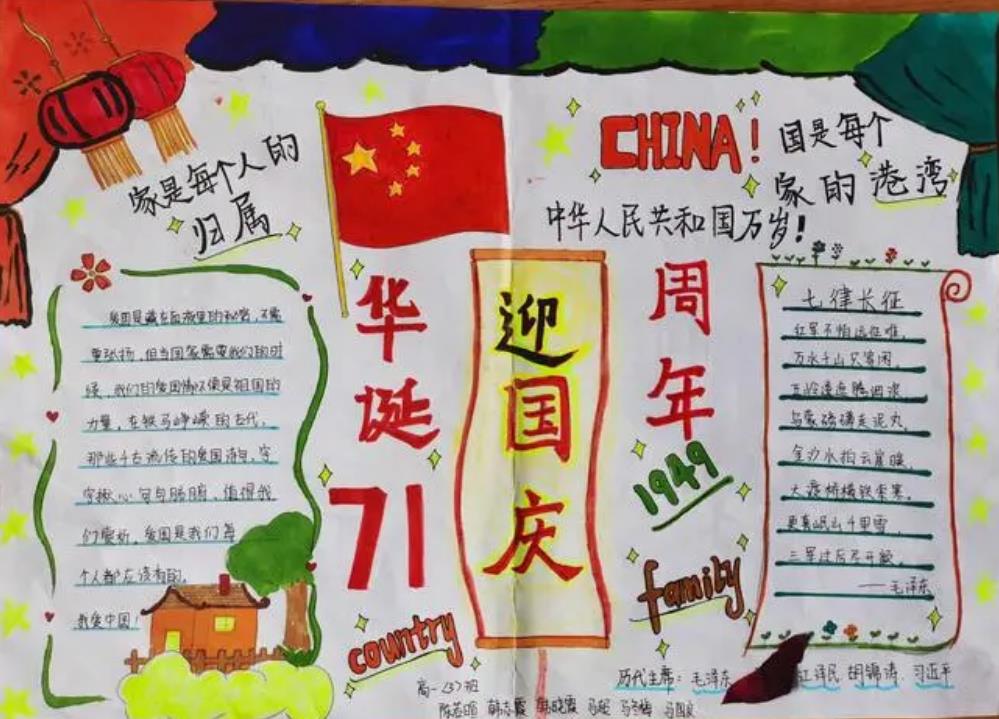 家是每个人的
归属
CHINA!
国是每个
家的港湾
中华人民共和国万岁!
华诞71
迎国庆
周年
1949
country
family
爱国是藏在血液里的秘密,不需
要张扬,但当国家需要我们的时
候,我们的爱国情怀便是祖国的
力量,在铁马峥嵘的古代,
那些千古流传的爱国诗句,字
字揪心句句肠腑,值得我
们赏析,爱国是我们每
个人都应该有的。
我爱中国!
七律长征
红军不怕远征难,
万水千山只等闲。
五岭逶迤腾细浪,
乌蒙磅礴走泥丸。
金沙水拍云崖暖,
大渡桥横铁索寒。
更喜岷山千里雪,
三军过后尽开颜。
——毛泽东
历代主席:毛泽东 江泽民 胡锦涛 习近平
高一(37)班
韩志霞 韩晓霞